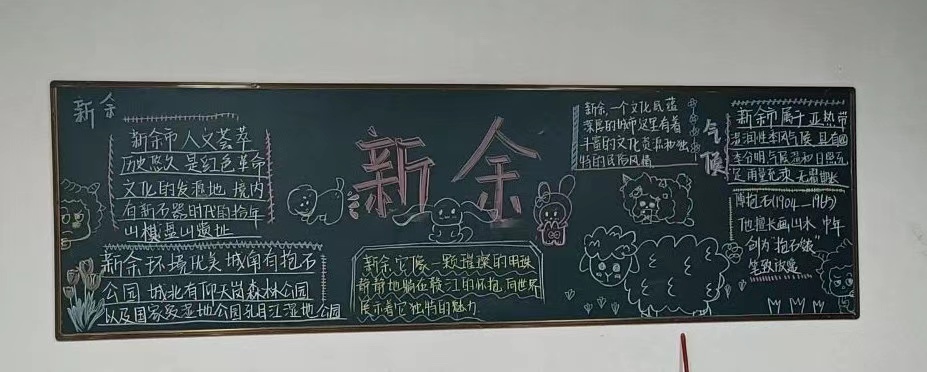 新余
新余市人文荟萃
历史悠久是红色革命
文化的发源地 境内
有新石器时代的拾年
山棋盘山遗址
新余环境优美城南有抱石
公园 城北有仰天岗森林公园
以及国家级湿地公园孔目江湿地公园
新余
新余它像一颗璀璨的明珠
静静地躺在赣江的怀抱 向世界
展示着它独特的魅力
新余,一个文化底蕴
深厚的城市这里有着
丰富的文化资源和独
特的民俗风情
气候
新余市属于亚热带
湿润性季风气候 具有四
季分明气候温和日照充
足雨量充沛 无霜期长
傅抱石(1904—1965)
他擅长画山水 中年
创为"抱石皴"
笔致放逸